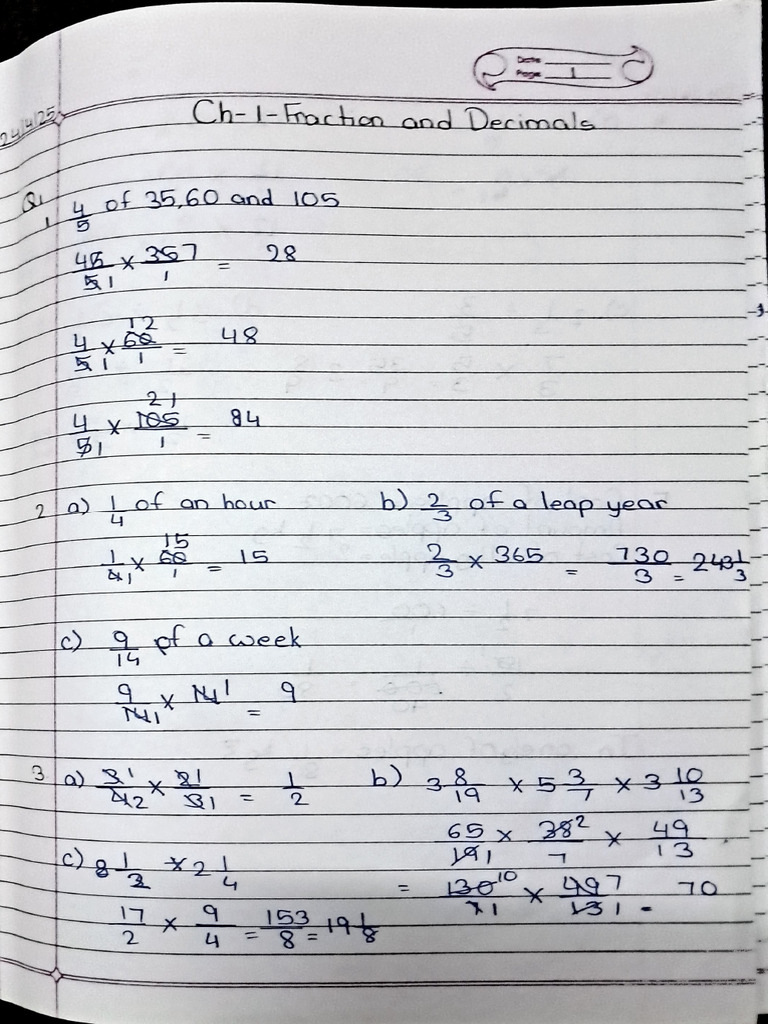 Date
Page 1
24/4/25
Ch-1-Fraction and Decimals
Q1
1 4/5 of 35,60 and 105
45/5 1 × 35 7/1 = 28
4/5 1 × 60 12/1 = 48
4/5 1 × 105 21/1 = 84
2 a) 1/4 of an hour b) 2/3 of a leap year
1/4 1 × 60 15/1 = 15 2/3 × 365 = 730/3 = 243 1/3
c) 9/14 of a week
9/14 1 × 14 1 = 9
3 a) 3 1/4 2 × 2 1/3 1 = 1/2 b) 3 8/19 × 5 3/7 × 3 10/13
65/19 1 × 38 2/7 × 49/13
c) 8 1/2 × 2 1/4
= 130 10/7 1 × 49 7/13 1 = 70
17/2 × 9/4 = 153/8 = 19 1/8